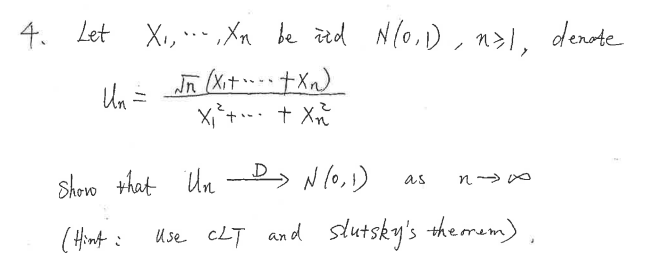 4. Let X₁, ⋯, Xn be iid N(0,1), n≥1, denote
Un = √n (X₁+⋯⋯+Xn) / X₁²+⋯ + Xn²
Show that Un —D→ N(0,1) as n→∞
(Hint: Use CLT and Slutsky's theorem).